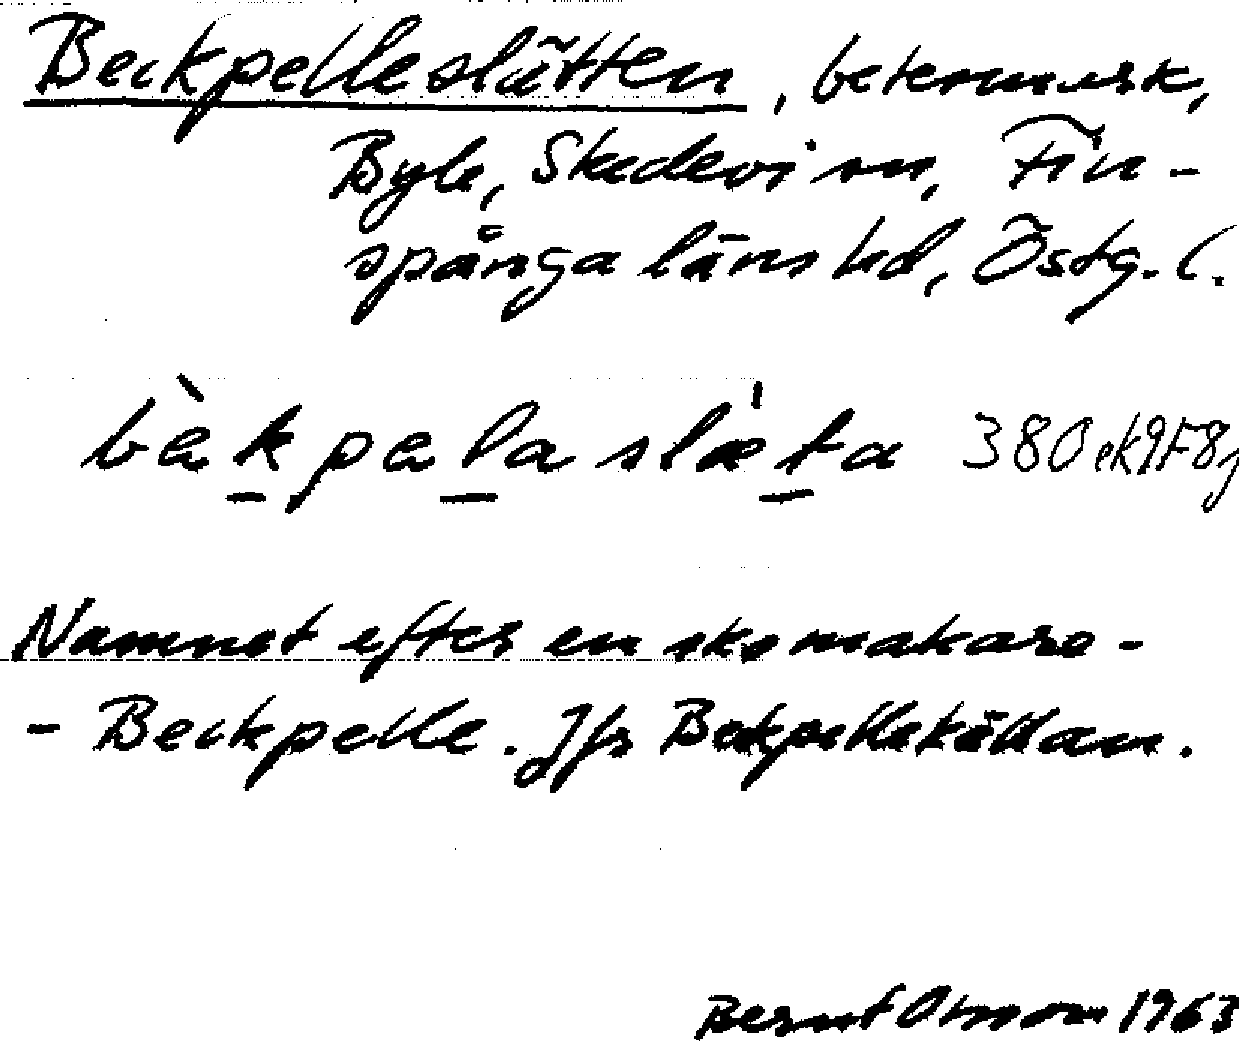 Beckpelleslätten, betesmark,
Byle, Skedevi sn, Fin-
spånga länshd, Östg. l.
bèkpelaslǽta 38Öek9F8j
Namnet efter en skomakare -
- Beckpelle. Jfr Beckpellekällan.
Bernt Olsson 1963